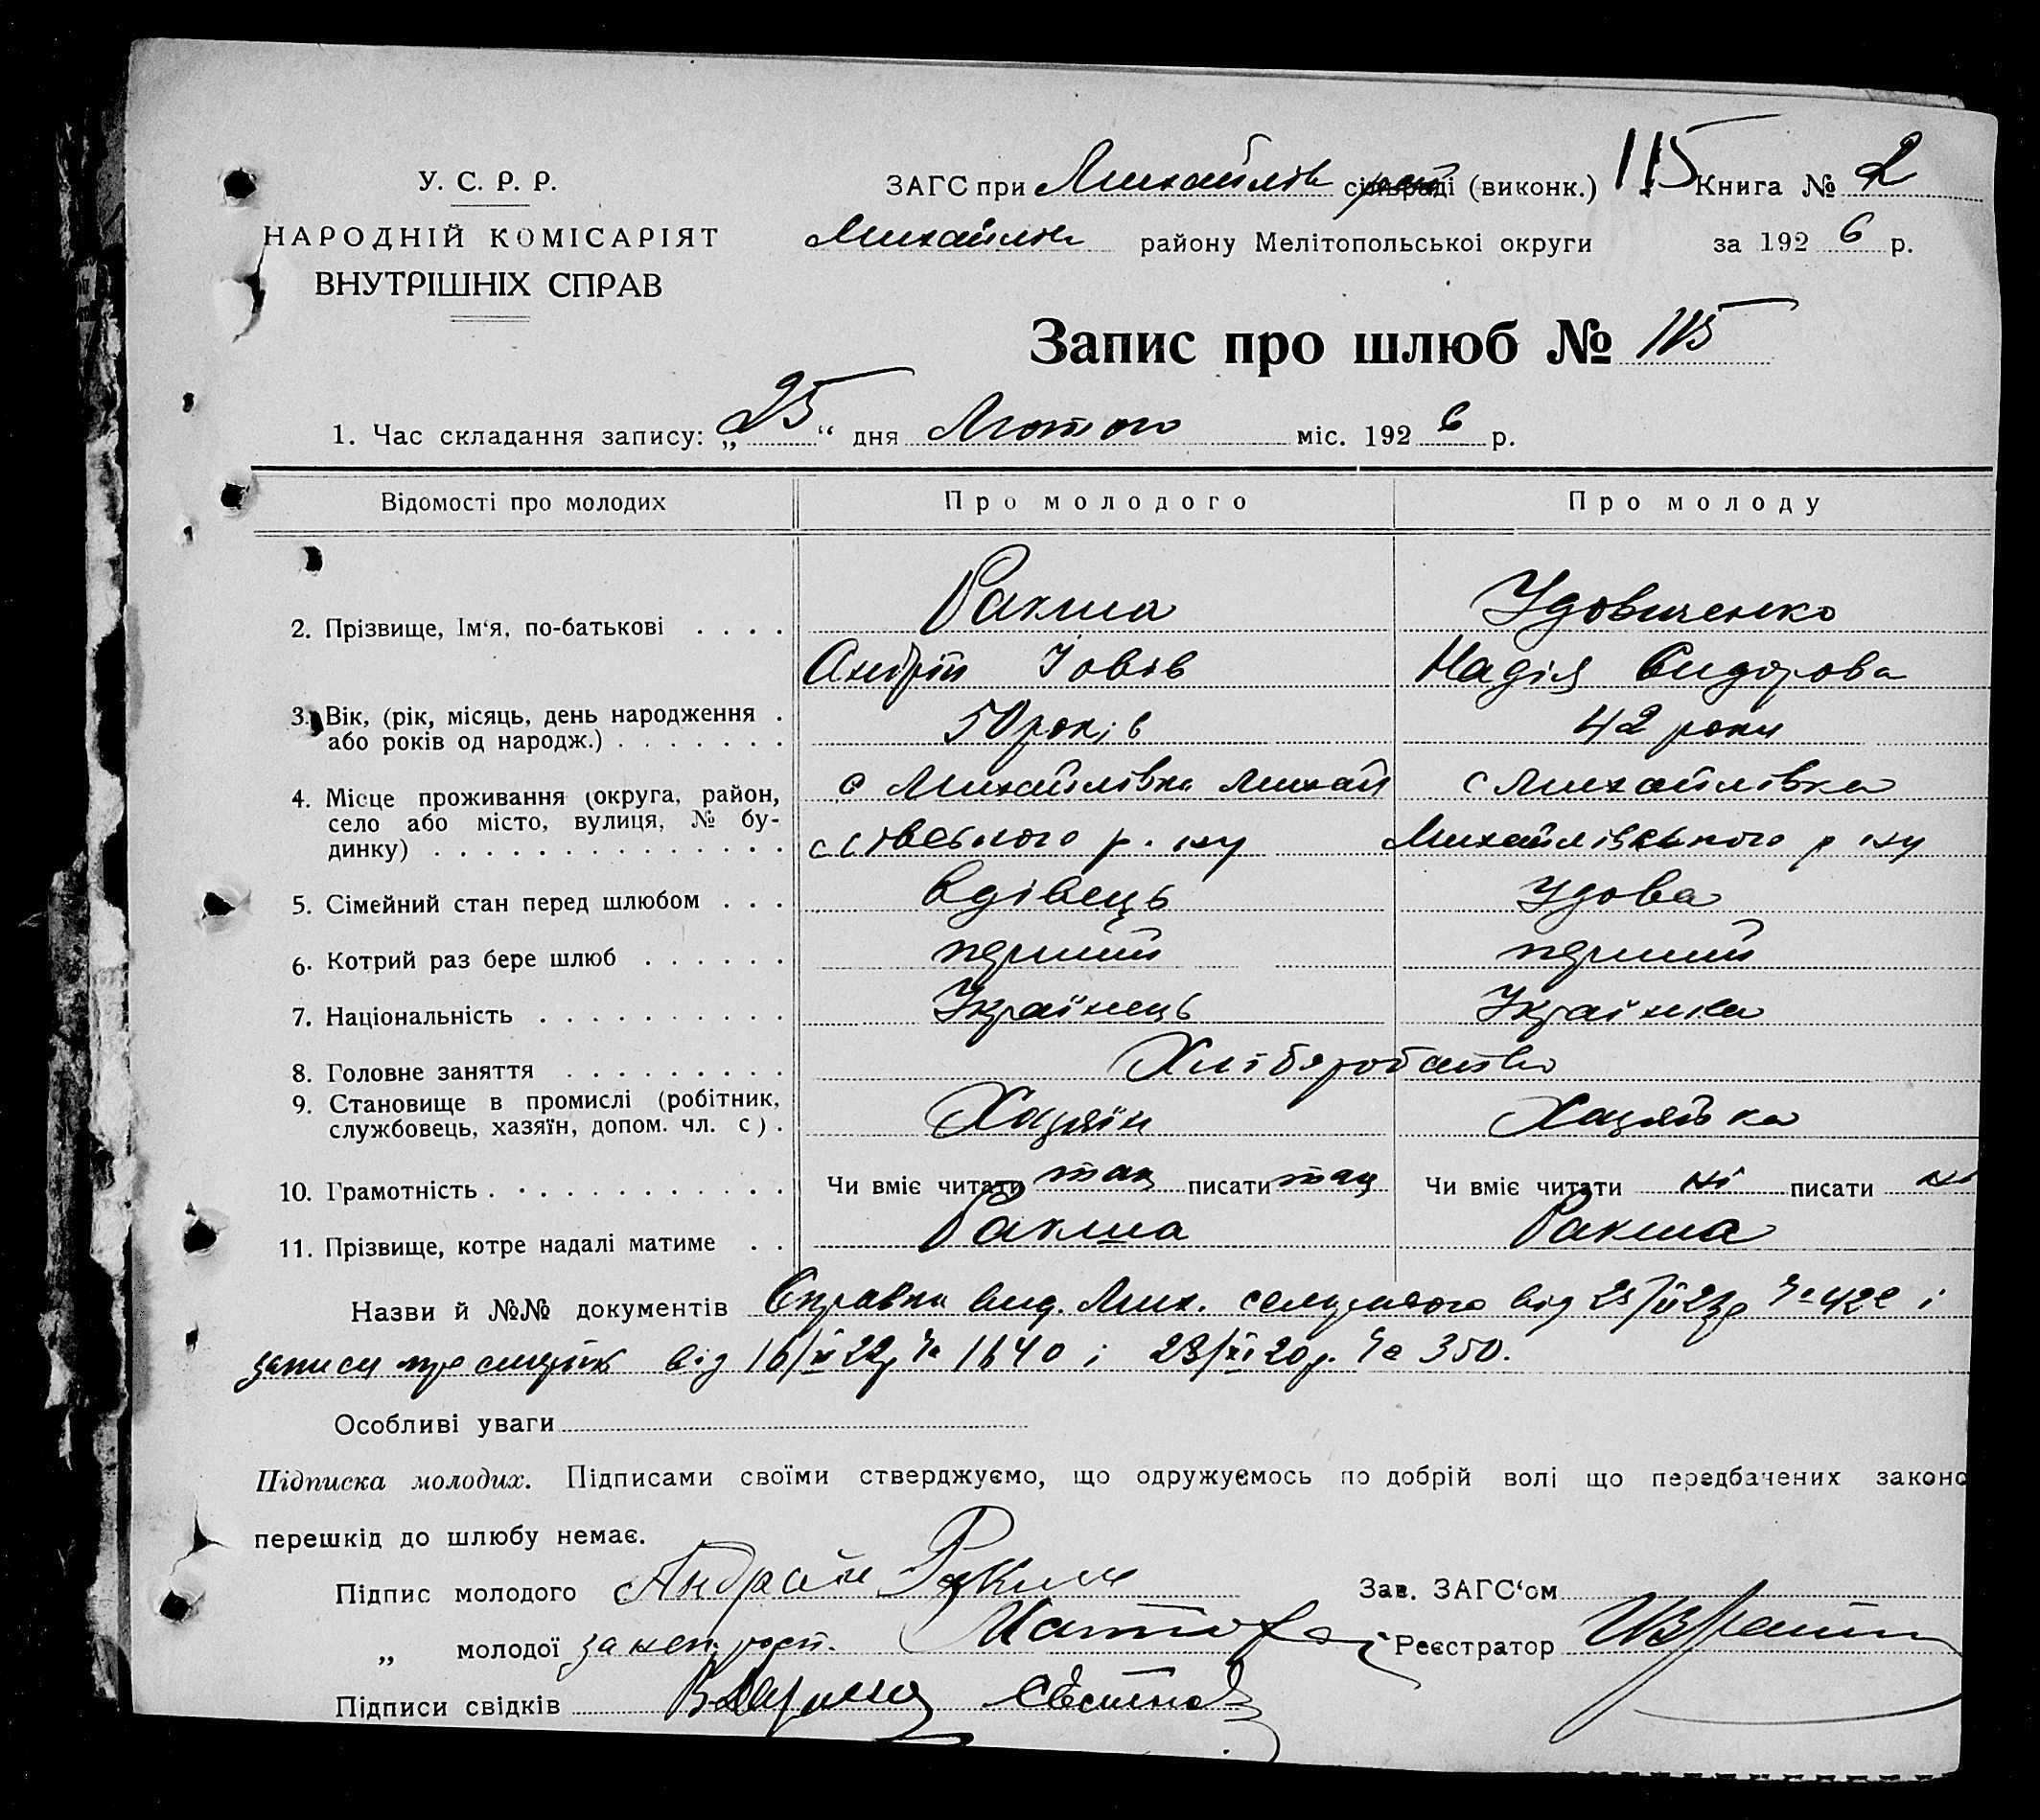 У. С. Р. Р.
НАРОДНІЙ КОМІСАРІЯТ
ВНУТРІШНІХ СПРАВ
ЗАГС при Михайлів сільраді (виконк.) 115 Книга № 2
Михайлів району Мелітопольської округи за 1926 р.
Запис про шлюб № 115
1. Час складання запису: „25“ дня Лютого міс. 1926 р.
Відомості про молодих Про молодого Про молоду
2. Прізвище, Ім‘я, по-батькові . . . . Ракша Удовиченко
Андрій Іовів Надія Сидорова
3. Вік, (рік, місяць, день народження . або років од народж.) . . . . . . . 50 років 42 роки
4. Місце проживання (округа, район, с Михайлівка Михай с Михайлівка
село або місто, вулиця, № бу-
динку) . . . . . . . . . . . . . . лівського р. ну Михайлівського р ну
5. Сімейний стан перед шлюбом . . . Вдівець Удова
6. Котрий раз бере шлюб . . . . . . перший перший
7. Національність . . . . . . . . . . Українець Українка
8. Головне заняття . . . . . . . . . Хліборобство
9. Становище в промислі (робітник,
службовець, хазяїн, допом. чл. с) . Хазяїн Хазяйка
10. Грамотність . . . . . . . . . . . . Чи вміє читати так писати так Чи вміє читати ні писати ні
11. Прізвище, котре надалі матиме . . Ракша Ракша
Назви й №№ документів Справка вид. Мих. від і
записи про смерть від 16/ 22р № 1640 і 23/XI 20р. № 350.
Особливі уваги
Підписка молодих. Підписами своїми стверджуємо, що одружуємось по добрій волі що передбачених законо
перешкід до шлюбу немає.
Підпис молодого Андрей Ракша Зав. ЗАГС‘ом
„ молодої за неп. росп. Реєстратор
Підписи свідків